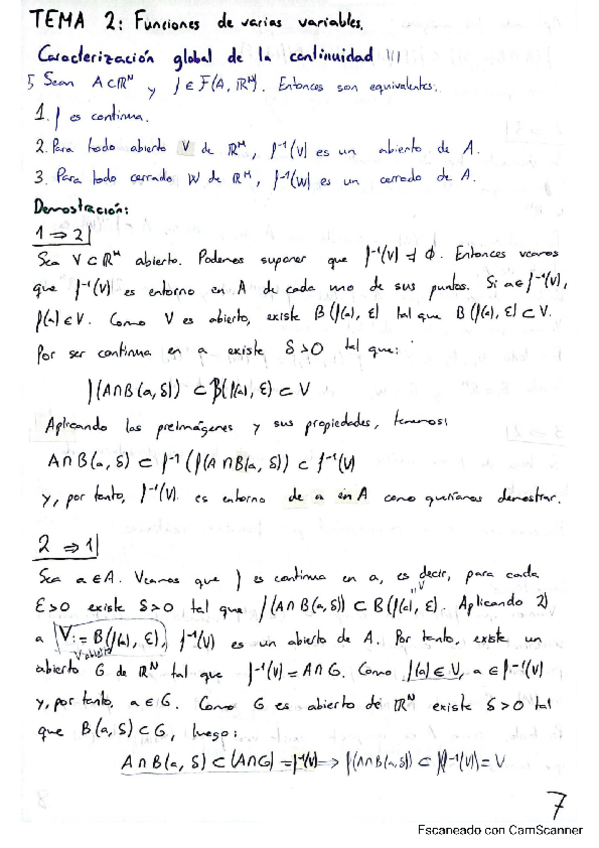 TEMA 2: Funciones de varias variables.
Caracterización global de la continuidad
Sean A⊂ℝᴺ y f∈F(A, ℝᴹ). Entonces son equivalentes:
1. f es continua.
2. Para todo abierto V de ℝᴹ, f⁻¹(V) es un abierto de A.
3. Para todo cerrado W de ℝᴹ, f⁻¹(W) es un cerrado de A.
Demostración:
1 ⇒ 2|
Sea V⊂ℝᴹ abierto. Podemos suponer que f⁻¹(V) ≠ ∅. Entonces veamos
que f⁻¹(V) es entorno en A de cada uno de sus puntos. Si a∈f⁻¹(V),
f(a)∈V. Como V es abierto, existe B(f(a), ε) tal que B(f(a), ε)⊂V.
Por ser continua en a existe δ>0 tal que:
f(A∩B(a, δ)) ⊂ B(f(a), ε) ⊂ V
Aplicando las preimágenes y sus propiedades, tenemos:
A∩B(a, δ) ⊂ f⁻¹(f(A∩B(a, δ)) ⊂ f⁻¹(V)
y, por tanto, f⁻¹(V) es entorno de a en A como queríamos demostrar.
2 ⇒ 1|
Sea a∈A. Veamos que f es continua en a, es decir, para cada
ε>0 existe δ>0 tal que f(A∩B(a, δ)) ⊂ B(f(a), ε). Aplicando 2)
a V:=B(f(a), ε), f⁻¹(V) es un abierto de A. Por tanto, existe un
V abierto
abierto G de ℝᴺ tal que f⁻¹(V)=A∩G. Como f(a)∈V, a∈f⁻¹(V)
y, por tanto, a∈G. Como G es abierto de ℝᴺ existe δ>0 tal
que B(a, δ)⊂G, luego:
A∩B(a, δ)⊂(A∩G)=f⁻¹(V)→f(A∩B(a,δ))⊂f(f⁻¹(V))=V
7
Escaneado con CamScanner